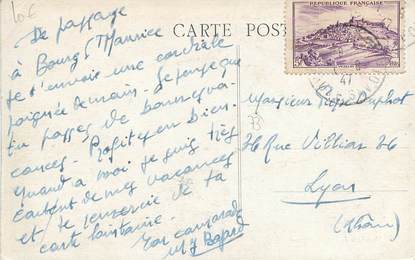 10€
De passage
à Bourg St Maurice
je t'envoie une cordiale
poignée de main. Je pense que
tu passes de bonnes va-
cances. Profites en bien.
Quand a moi je suis très
content de mes vacances
et te remercie de ta
carte lointaine.
Ton camarade
CARTE POSTALE
REPUBLIQUE FRANÇAISE
47
Monsieur
26 Rue Villiers 26
Lyon
(Rhône)